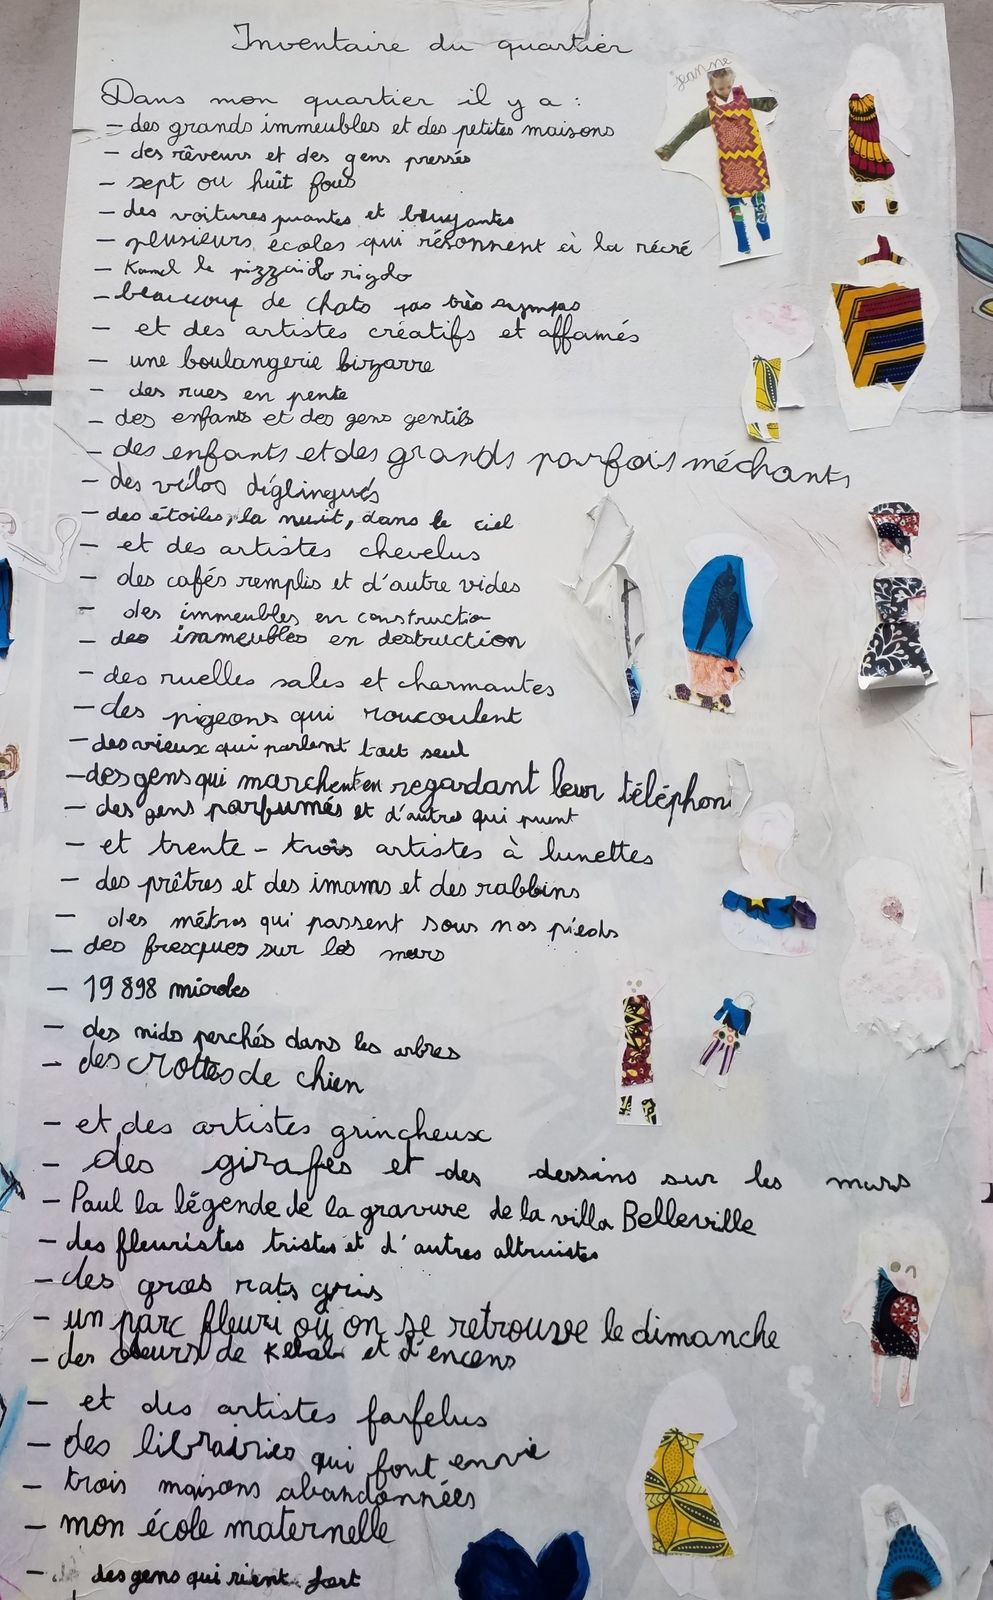 Inventaire du quartier
jeanne
Dans mon quartier il y a :
- des grands immeubles et des petites maisons
- des rêveurs et des gens pressés
- sept ou huit fous
- des voitures puantes et bruyantes
- plusieurs écoles qui résonnent à la récré
- Kamel le pizzaïolo rigolo
- beaucoup de chats pas très sympas
- et des artistes créatifs et affamés
- une boulangerie bizarre
- des rues en pente
- des enfants et des gens gentils
- des enfants et des grands parfois méchants
- des vélos déglingués
- des étoiles, la nuit, dans le ciel
- et des artistes chevelus
- des cafés remplis et d'autre vides
- des immeubles en construction
- des immeubles en destruction
- des ruelles sales et charmantes
- des pigeons qui roucoulent
- des vieux qui parlent tout seul
- des gens qui marchent en regardant leur téléphon
- des gens parfumés et d'autres qui puent
- et trente-trois artistes à lunettes
- des prêtres et des imams et des rabbins
- des métros qui passent sous nos pieds
- des fresques sur les murs
- 19 898 microbes
- des nids perchés dans les arbres
- des crottes de chien
- et des artistes grincheux
- des girafes et des dessins sur les murs
- Paul la légende de la gravure de la villa Belleville
- des fleuristes tristes et d'autres altruistes
- des gros rats gris
- un parc fleuri où on se retrouve le dimanche
- des odeurs de Kebab et d'encens
- et des artistes farfelus
- des librairies qui font envie
- trois maisons abandonnées
- mon école maternelle
- des gens qui rient fort